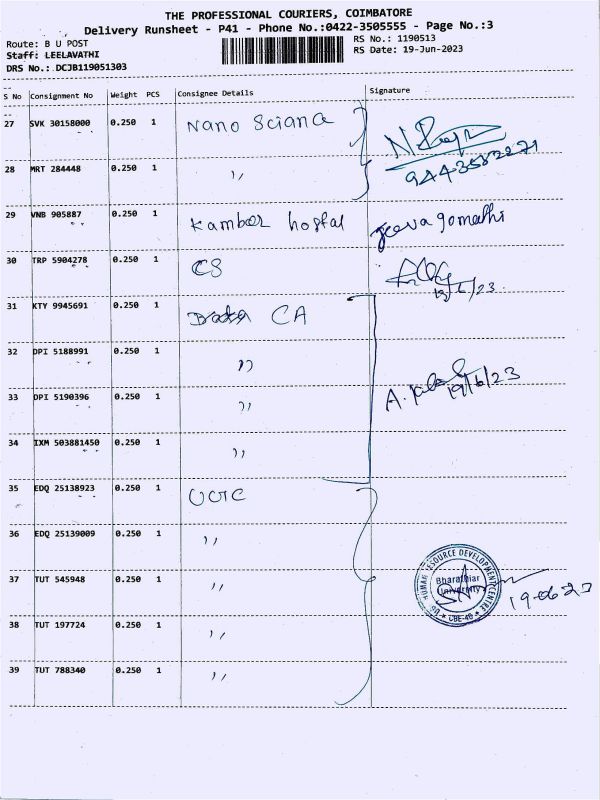 THE PROFESSIONAL COURIERS, COIMBATORE
Delivery Runsheet - P41 - Phone No.:0422-3505555 - Page No.:3
Route: B U POST
RS No.: 1190513
Staff: LEELAVATHI
RS Date: 19-Jun-2023
DRS No.:DCJB119051303
S No Consignment No Weight PCS Consignee Details Signature
27 SVK 30158000 0.250 1 Nano Sciana
28 MRT 284448 0.250 1 "
9443582271
29 VNB 905887 0.250 1 Kamber hostal Jeeva gomathi
30 TRP 5904278 0.250 1 CS
19/6/23
31 KTY 9945691 0.250 1 CA
32 DPI 5188991 0.250 1 "
33 DPI 5190396 0.250 1 " 19/6/23
34 IXM 503881450 0.250 1 "
35 EDQ 25138923 0.250 1
36 EDQ 25139009 0.250 1 "
37 TUT 545948 0.250 1 "
HUMAN RESOURCE DEVELOPMENT CENTRE
Bharathiar
University
CBE-46
19-06-23
38 TUT 197724 0.250 1 "
39 TUT 788340 0.250 1 "